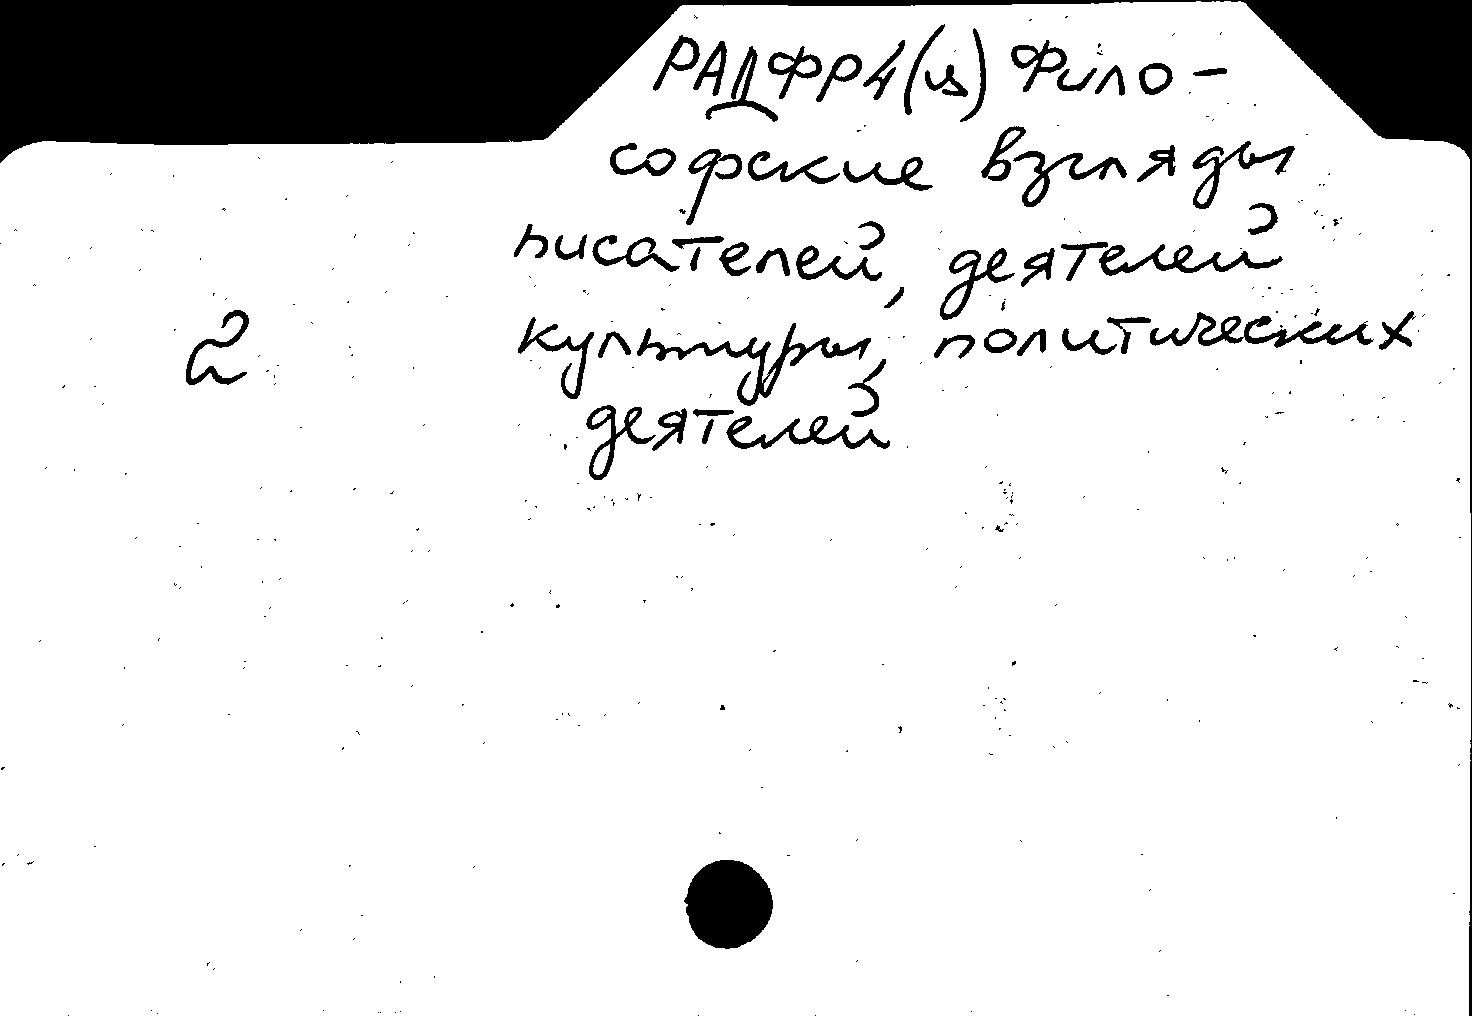 РАДФР4(из) Фило-
софские взгляды
писателей, деятелей
2
культуры, политических
деятелей